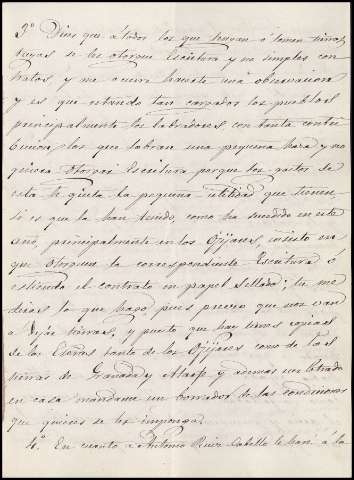 3º Dices que a todos los que tengan ó tomen tierras
suyas se les otorgue Escritura y no simples con
tratos, y me ocurre hacerte una observacion
y es que estando tan cargados los pueblos
principalmente los labradores con tanta contri
bucion, los que labran una pequeña haza y no
quieren otorgar Escritura porque los gastos de
esta le quita la pequeña utilidad que tienen,
si es que la han tenido, como ha sucedido en este
año, principalmente en los Ogijares, insisto en
que otorguen la correspondiente Escritura ó
estiendo el contrato en papel sellado; tu me
diras lo que hago pues preveo que nos van
a dejar tierras, y puesto que hay tienes copias
de las Escrs tanto de los Ogijares como de las
tierras de Granada y Alarfe y ademas un letrado
en casa mandame un borrador de las condiciones
que quieres se les imponga.
4º En cuanto a Antonio Ruiz Cabello le haré á la